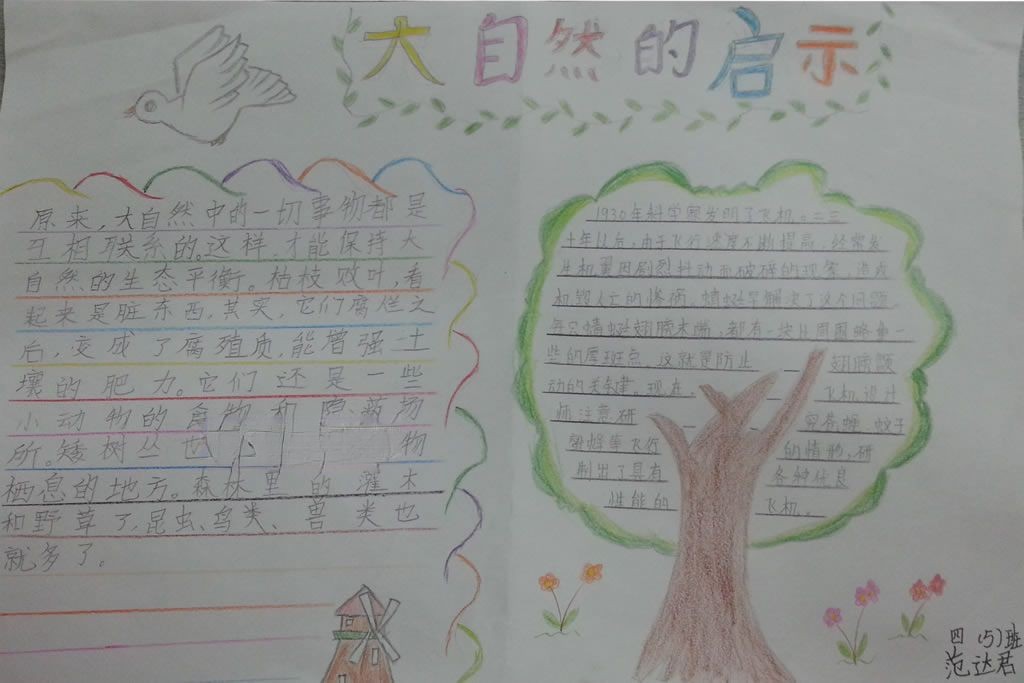 大自然的启示
原来,大自然中的一切事物都是
互相联系的。这样,才能保持大
自然的生态平衡。枯枝败叶,看
起来是脏东西,其实,它们腐烂之
后,变成了腐殖质,能增强土
壤的肥力。它们还是一些
小动物的食物和隐蔽场
所。矮树丛也 物
栖息的地方。森林里的灌木
和野草了,昆虫、鸟类、兽类也
就多了。
1930年科学家发明了飞机。二三
十年以后,由于飞行速度不断提高,经常发
片机翼因剧烈抖动而破碎的现象,造成
机毁人亡的惨祸。蜻蜓早解决了这个问题。
每只蜻蜓翅膀末端,都有一块比周围略重一
些的厚斑点,这就是防止 翅膀颤
动的关键。现在, 飞机设计
师注意研 究苍蝇、蚊子
蜜蜂等飞行 的情形,研
制出了具有 各种优良
性能的 飞机。
四(5)班
范达君